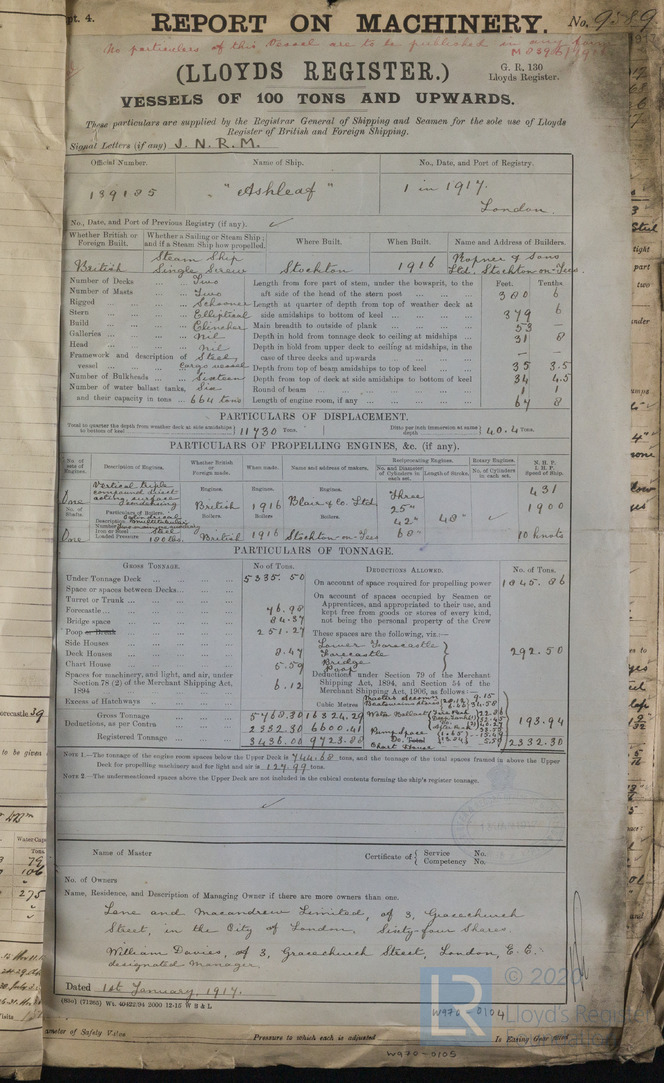 pt. 4.
REPORT ON MACHINERY.
No. 9589
No particulars of this Vessel are to be published in any form
(LLOYDS REGISTER.)
G. R. 130
Lloyds Register.
VESSELS OF 100 TONS AND UPWARDS.
These particulars are supplied by the Registrar General of Shipping and Seamen for the sole use of Lloyds
Register of British and Foreign Shipping.
Signal Letters (if any) J. N. R. M.
Official Number. Name of Ship. No., Date, and Port of Registry.
139185 "Ashleaf" 1 in 1917.
London
No., Date, and Port of Previous Registry (if any).
Whether British or Foreign Built. Whether a Sailing or Steam Ship; and if a Steam Ship how propelled. Where Built. When Built. Name and Address of Builders.
British Steam Ship Single Screw Stockton 1916 Ropner & Sons Ltd. Stockton-on-Tees
Number of Decks Two Length from fore part of stem, under the bowsprit, to the Feet. Tenths
Number of Masts Two aft side of head of the stern post 380 6
Rigged Schooner Length at quarter of depth from top of weather deck at
Stern Elliptical side amidships to bottom of keel 379 6
Build Clencher Main breadth to outside of plank 53 —
Galleries Nil Depth in hold from tonnage deck to ceiling at midships 31 8
Head Nil Depth in hold from upper deck to ceiling at midships, in the
Framework and description of Steel, case of three decks and upwards — —
vessel Cargo vessel Depth from top of beam amidships to top of keel 35 3.5
Number of Bulkheads Sixteen Depth from top of deck at side amidships to bottom of keel 34 4.5
Number of water ballast tanks, Six Round of beam 1 1
and their capacity in tons 664 tons Length of engine room, if any 64 8
PARTICULARS OF DISPLACEMENT.
Total to quarter the depth from weather deck at side amidships to bottom of keel 11730 Tons. Ditto per inch immersion at same depth 40.4 Tons.
PARTICULARS OF PROPELLING ENGINES, &c. (if any).
No. of sets of Engines. Description of Engines. Whether British or Foreign made. When made. Name and address of makers. Reciprocating Engines. Rotary Engines. N. H. P.
No. and Diameter of Cylinders in each set. Length of Stroke. No. of Cylinders in each set. I. H. P. Speed of Ship.
One Vertical triple compound direct acting, surface condensing Engines. British Engines. 1916 Engines. Blair & Co. Ltd Three 431
No. of Shafts. Particulars of Boilers. Boilers. Boilers. Boilers. 25" 48" 1900
Description Number 42"
One Iron or Steel Steel Loaded Pressure 180 lbs. British 1916 Stockton-on-Tees 68" 10 knots
PARTICULARS OF TONNAGE.
GROSS TONNAGE. No of Tons. DEDUCTIONS ALLOWED. No. of Tons.
Under Tonnage Deck 5335.50 On account of space required for propelling power 1845.86
Space or spaces between Decks On account of spaces occupied by Seamen or
Turret or Trunk Apprentices, and appropriated to their use, and
Forecastle 76.98 kept free from goods or stores of every kind,
Bridge space 84.37 not being the personal property of the Crew
Poop or Break 251.27 These spaces are the following, viz:—
Side Houses Lower Forecastle
Deck Houses 8.47 Forecastle 292.50
Chart House 5.59 Bridge
Poop
Spaces for machinery, and light, and air, under Deductions under Section 79 of the Merchant
Section 78 (2) of the Merchant Shipping Act, Shipping Act, 1894, and Section 54 of the
1894 6.12 Merchant Shipping Act, 1906, as follows:—
Excess of Hatchways Cubic Metres
Gross Tonnage 5768.30 16324.29 Water Ballast
Deductions, as per Contra 2332.30 6600.41 Pump Space 193.94
Registered Tonnage 3436.00 9723.88 Chart House 5.59 2332.30
NOTE 1.—The tonnage of the engine room spaces below the Upper Deck is 744.68 tons, and the tonnage of the total spaces framed in above the Upper
Deck for propelling machinery and for light and air is 127.99 tons.
NOTE 2.—The undermentioned spaces above the Upper Deck are not included in the cubical contents forming the ship's register tonnage.
Name of Master Certificate of Service No.
Competency No.
No. of Owners
Name, Residence, and Description of Managing Owner if there are more owners than one.
Lane and Macandrew Limited, of 3, Gracechurch
Street, in the City of London, Sixty-four Shares.
William Davies, of 3, Gracechurch Street, London, E.C.
designated Manager.
Dated 1st January, 1917.
(850) (71265) Wt. 40422/94 2000 12-15 W B & L
W976-0104
LR
© 2020
Lloyd's Register
ameter of Safety Valve Pressure to which each is adjusted Is Easing Gear
W976-0105